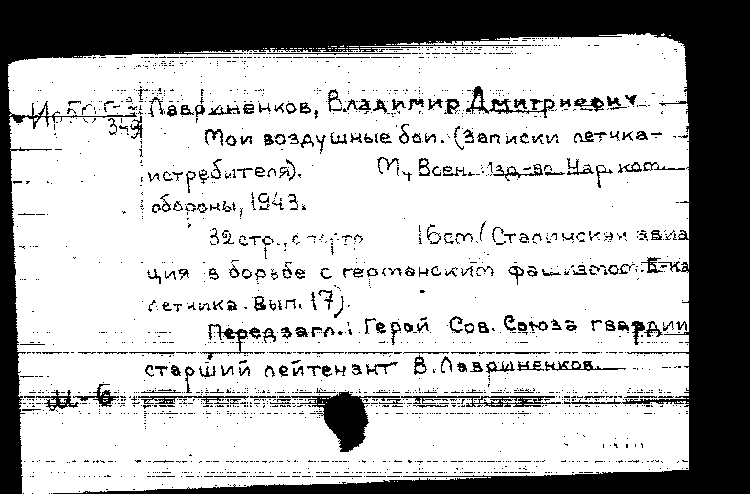 Ир50 Г-3 Лавриненков, Владимир Дмитриевич
349
Мои воздушные бои. (Записки летчика-
истребителя). М., Воен. изд-во Нар. ком.
обороны, 1943.
32 стр., с портр 16 см. (Сталинская авиа
ция в борьбе с германским фашизмом. Б-ка
летчика. Вып. 17).
Перед загл.: Герой Сов. Союза гвардии
старший лейтенант В. Лавриненков.
М-6